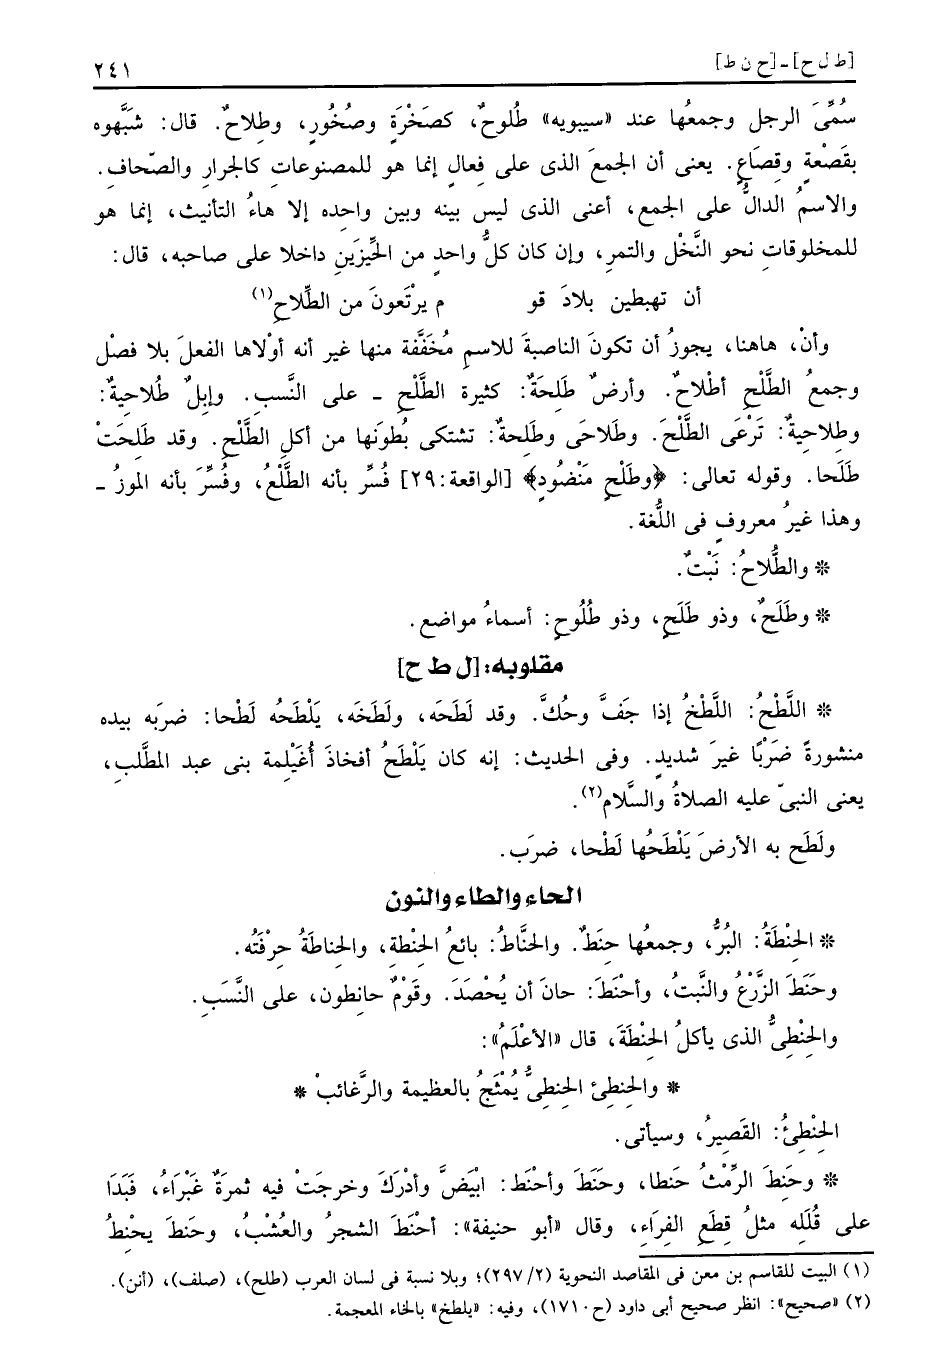 [ط ل ح] - [ح ن ط]
٢٤١
سُمِّىَ الرجل وجمعُها عند «سيبويه» طُلوحٌ، كصَخْرَةٍ وصُخُورٍ، وطِلاحٌ. قال: شبَّهوه
بقَصْعةٍ وقِصَاعٍ. يعنى أن الجمعَ الذى على فِعالٍ إنما هو للمصنوعاتِ كالجرارِ والصّحافِ.
والاسمُ الدالُّ على الجمع، أعنى الذى ليس بينه وبين واحِده إلا هاءُ التأنيث، إنما هو
للمخلوقاتِ نحو النَّخْل والتمرِ، وإن كان كلُّ واحدٍ من الحيِّزَينِ داخلا على صاحبه، قال:
أن تهبطين بلادَ قو م يرْتَعونَ من الطِّلاحِ(١)
وأنْ، هاهنا، يجوزُ أن تكونَ الناصبةَ للاسمِ مُخَفَّفة منها غير أنه أوْلاها الفعلَ بلا فصْل
وجمعُ الطَّلْحِ أطْلاحٌ. وأرضٌ طَلِحَةٌ: كثيرة الطَّلْحِ - على النَّسبِ. وإبلٌ طُلاحِيةٌ:
وطِلاحِيةٌ: تَرْعَى الطَّلْحَ. وطَلاحَى وطَلِحةٌ: تشتكى بُطونَها من أكلِ الطَّلْحِ. وقد طَلِحَتْ
طَلَحا. وقوله تعالى: ﴿وطَلْحٍ مَنْضُودٍ﴾ [الواقعة:٢٩] فُسِّر بأنه الطَّلْعُ، وفُسِّرَ بأنه الموزُ -
وهذا غيرُ معروفٍ فى اللُّغة.
* والطُّلاحُ: نَبْتٌ.
* وطَلَحٌ، وذو طَلَحٍ، وذو طُلُوحٍ: أسماءُ مواضع.
مقلوبه: [ل ط ح]
* اللَّطْحُ: اللَّطْخُ إذا جَفَّ وحُكَّ. وقد لَطَحَه، ولَطَخَه، يَلْطَحُه لَطْحا: ضربَه بيده
منشورةً ضَرْبًا غيرَ شديدٍ. وفى الحديث: إنه كان يَلْطَحُ أفخاذَ أُغَيْلِمة بنى عبد المطَّلبِ،
يعنى النبىّ عليه الصلاةُ والسَّلام(٢).
ولَطَح به الأرضَ يَلْطَحُها لَطْحا، ضرَب.
الحاء والطاء والنون
* الحِنْطَةُ: البُرُّ، وجمعُها حِنَطٌ. والحنَّاطُ: بائعُ الحِنْطةِ، والحِناطةُ حِرْفَتُه.
وحَنَطَ الزَّرْعُ والنَّبتُ، وأحْنَطَ: حانَ أن يُحْصَدَ. وقَوْمٌ حانِطون، على النَّسَبِ.
والحِنْطِىُّ الذى يأكلُ الحِنْطَةَ، قال «الأعْلَمُ»:
* والحِنطِئ الحِنطِىُّ يُمْثَجُ بالعظيمة والرَّغائبْ *
الحِنْطِئُ: القَصِيرُ، وسيأتى.
* وحَنِطَ الرِّمْثُ حَنطا، وحَنَطَ وأحْنَط: ابْيَضَّ وأدْرَكَ وخرجَتْ فيه ثمرَةٌ غَبْرَاءُ، فَبَدَا
على قُلَلِه مثلُ قِطَعِ الفِرَاءِ، وقال «أبو حنيفة»: أحْنَطَ الشجرُ والعُشْبُ، وحَنَطَ يحْنِطُ
(١) البيت للقاسم بن معن فى المقاصد النحوية (٢/ ٢٩٧)؛ وبلا نسبة فى لسان العرب (طلح)، (صلف)، (أنن).
(٢) «صحيح»: انظر صحيح أبى داود (ح١٧١٠)، وفيه: «يلطخ» بالخاء المعجمة.